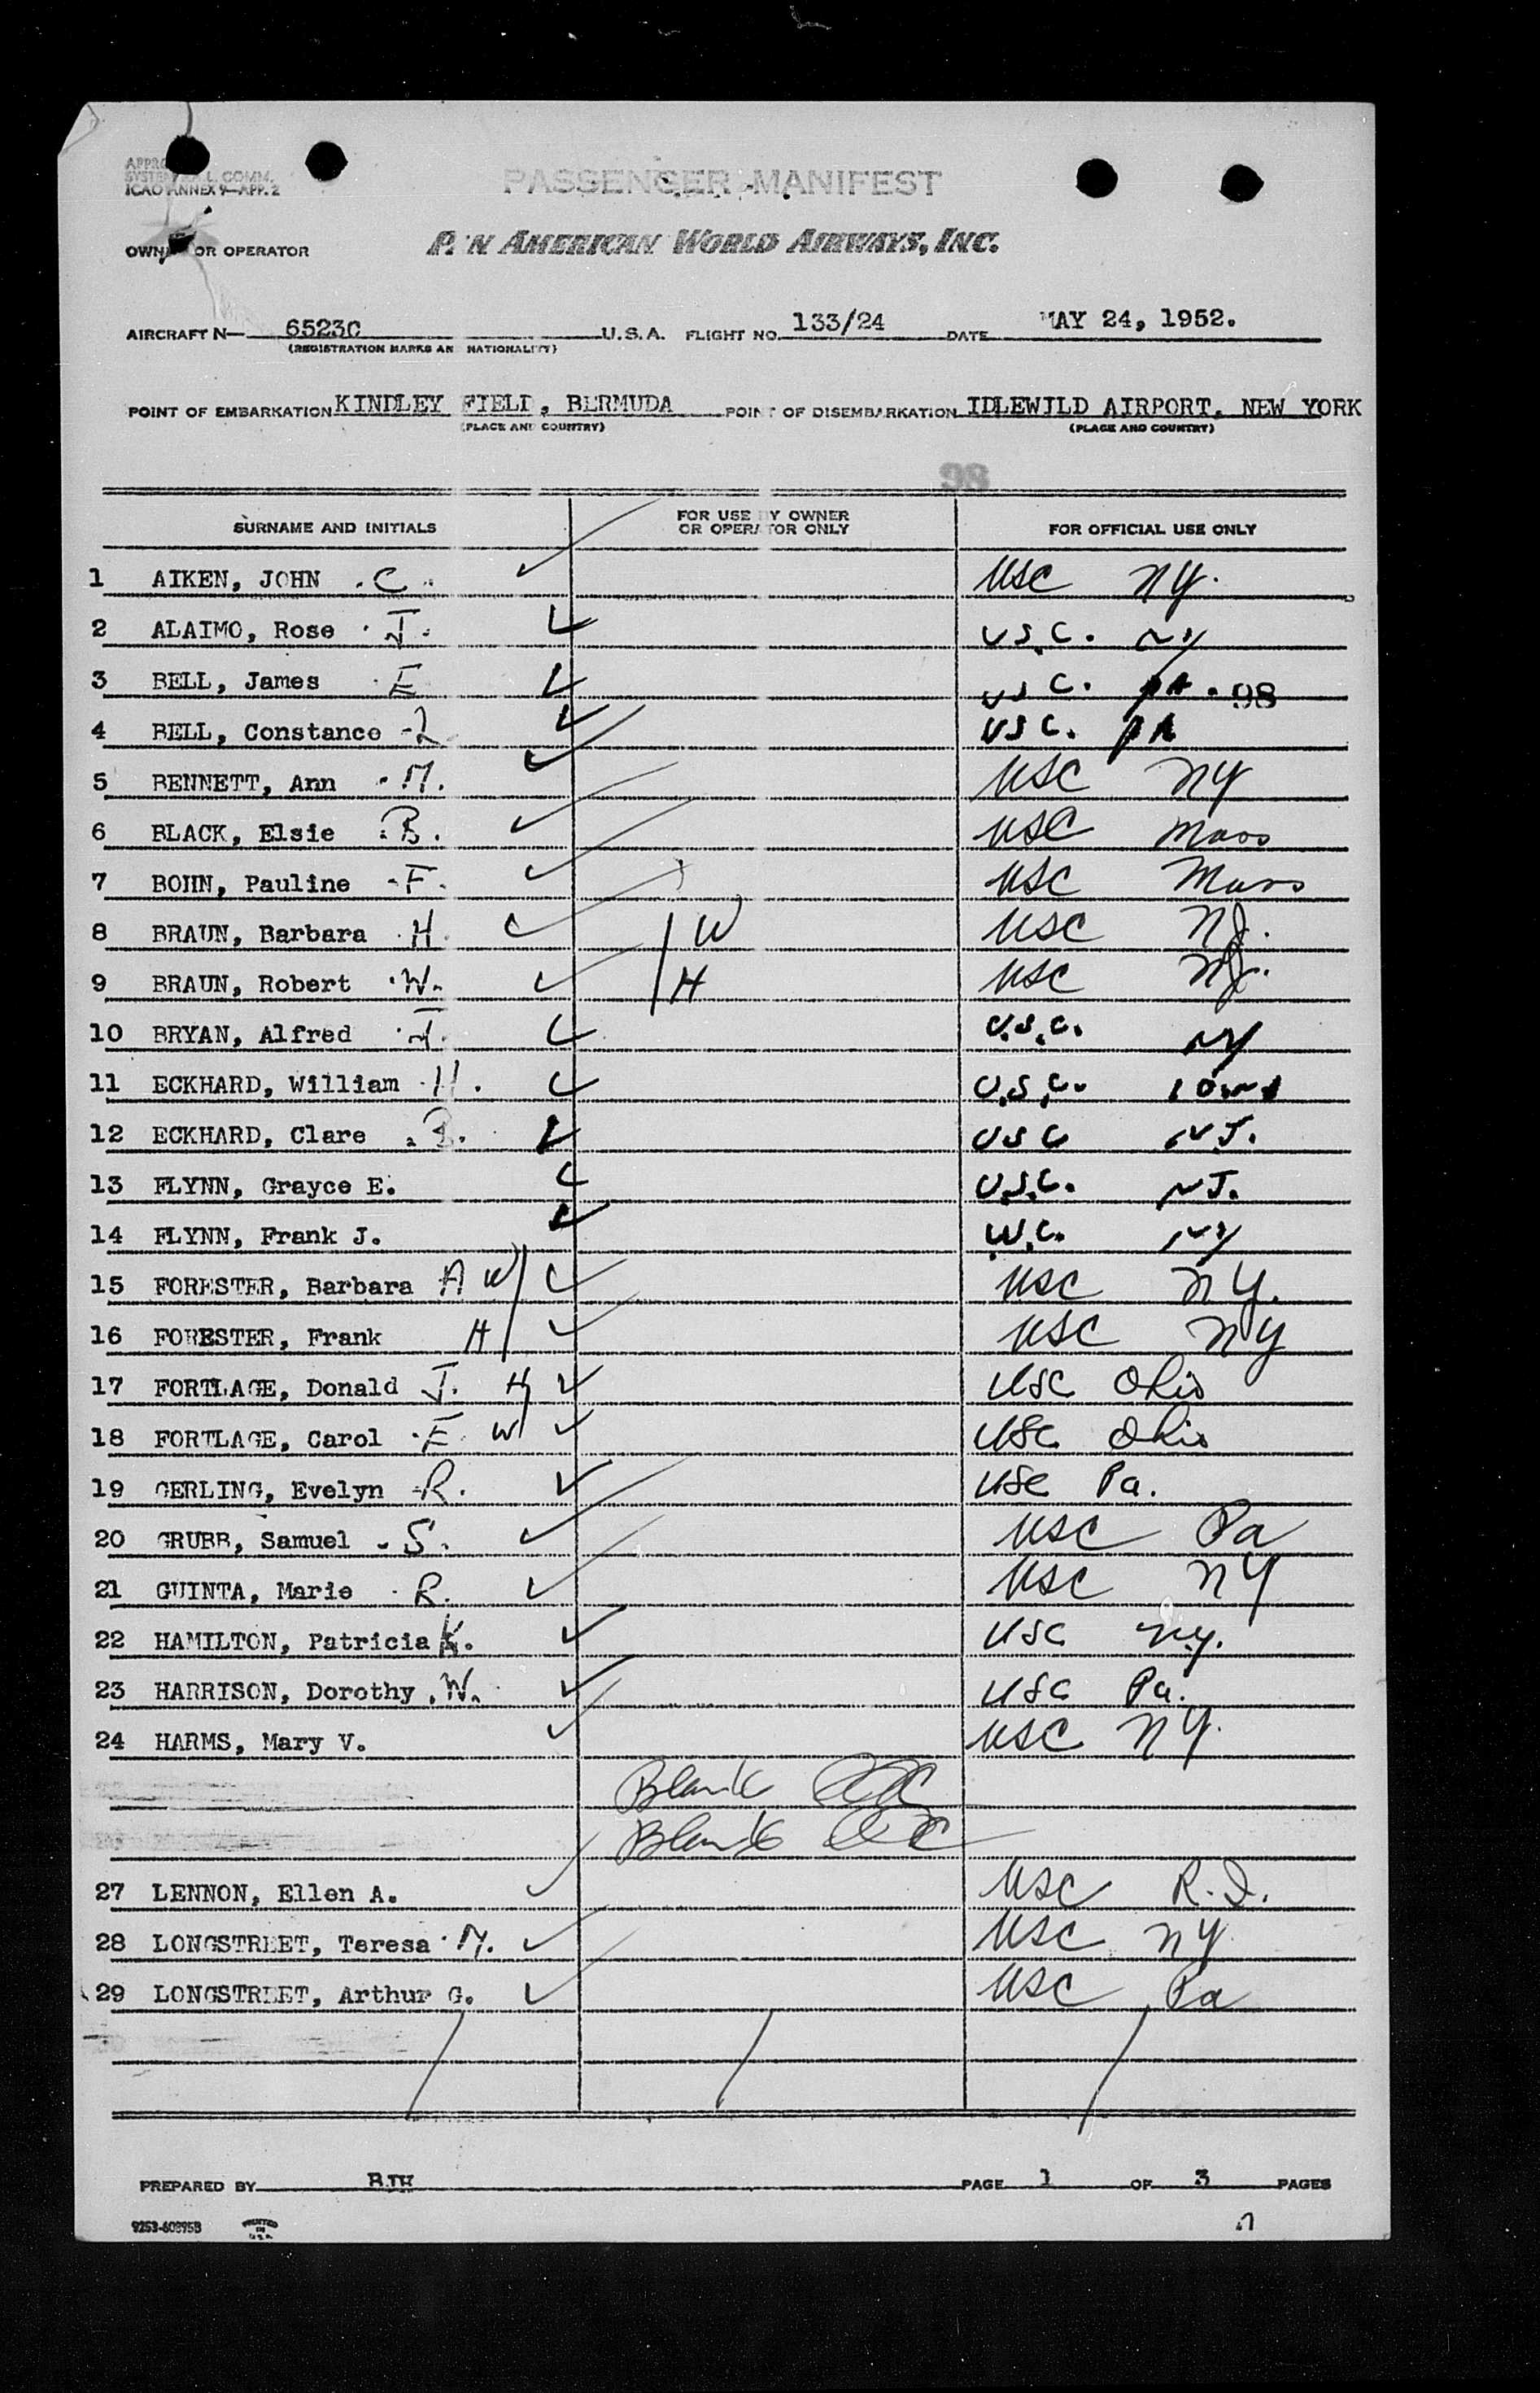 ICAO ANNEX 9—APP. 2
PASSENGER MANIFEST
OR OPERATOR
AMERICAN WORLD AIRWAYS, INC.
AIRCRAFT N— 6523C U.S.A. FLIGHT NO. 133/24 DATE MAY 24, 1952.
(REGISTRATION MARKS AN NATIONALITY)
POINT OF EMBARKATION KINDLEY FIELD, BERMUDA POINT OF DISEMBARKATION IDLEWILD AIRPORT, NEW YORK
(PLACE AND COUNTRY) (PLACE AND COUNTRY)
98
SURNAME AND INITIALS FOR USE BY OWNER OR OPERATOR ONLY FOR OFFICIAL USE ONLY
1 AIKEN, JOHN C. USC NY.
2 ALAIMO, Rose J. U.S.C. NY
3 BELL, James E USC. PA. 98
4 BELL, Constance L USC. PA
5 BENNETT, Ann M. USC NY
6 BLACK, Elsie B. USC Mass
7 BOHN, Pauline F. USC Mass
8 BRAUN, Barbara H. W USC NJ.
9 BRAUN, Robert W. H USC NJ.
10 BRYAN, Alfred J. U.S.C. NY
11 ECKHARD, William H. U.S.C. IOWA
12 ECKHARD, Clare B. USC NJ.
13 FLYNN, Grayce E. U.S.C. NJ.
14 FLYNN, Frank J. U.S.C. NY
15 FORESTER, Barbara A W USC NY.
16 FORESTER, Frank H USC NY
17 FORTLAGE, Donald J. H USC Ohio
18 FORTLAGE, Carol E W USC Ohio
19 GERLING, Evelyn R. USC Pa.
20 GRUBB, Samuel S. USC Pa
21 GUINTA, Marie R. USC NY
22 HAMILTON, Patricia K. USC NY.
23 HARRISON, Dorothy W. USC Pa.
24 HARMS, Mary V. USC NY.
Blank
Blank
27 LENNON, Ellen A. USC R.I.
28 LONGSTREET, Teresa M. USC NY
29 LONGSTREET, Arthur G. USC Pa
PREPARED BY BTH PAGE 1 OF 3 PAGES
9253-60895B PRINTED IN U.S.A.